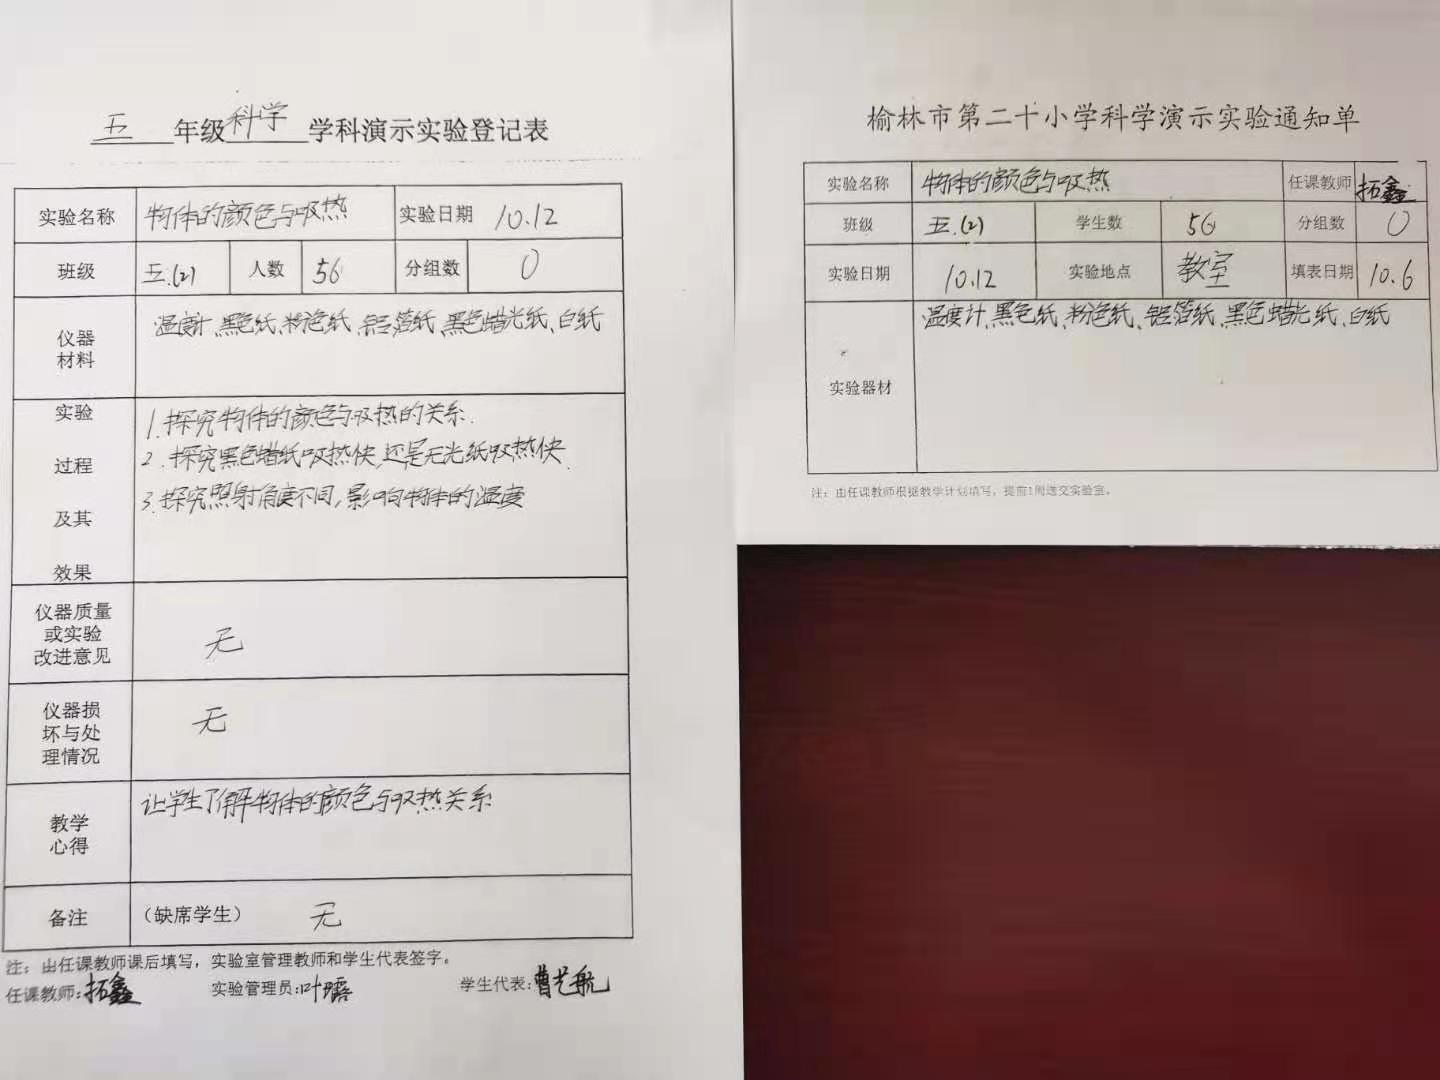 五年级科学学科演示实验登记表
实验名称 物体的颜色与吸热 实验日期 10.12
班级 五.(2) 人数 56 分组数 0
仪器
材料
温度计、黑色纸、粉色纸、铝箔纸、黑色蜡光纸、白纸
实验
过程
及其
效果
1.探究物体的颜色与吸热的关系.
2.探究黑色蜡纸吸热快,还是无光纸吸热快.
3.探究照射角度不同,影响物体的温度
仪器质量
或实验
改进意见
无
仪器损
坏与处
理情况
无
教学
心得
让学生了解物体的颜色与吸热关系
备注 (缺席学生) 无
注：由任课教师课后填写，实验室管理教师和学生代表签字。
任课教师:拓鑫 实验管理员:叶 学生代表:曹艺航
榆林市第二十小学科学演示实验通知单
实验名称 物体的颜色与吸热 任课教师 拓鑫
班级 五.(2) 学生数 56 分组数 0
实验日期 10.12 实验地点 教室 填表日期 10.6
实验器材
温度计、黑色纸、粉色纸、铝箔纸、黑色蜡光纸、白纸
注：由任课教师根据教学计划填写，提前1周送交实验室。